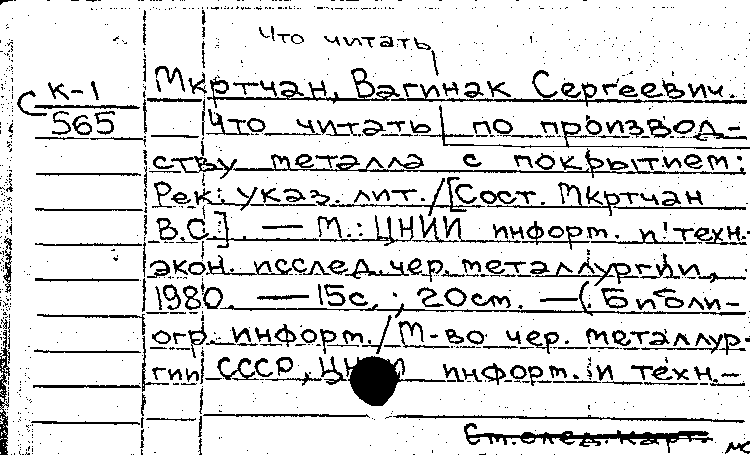 Что читать
К-1
565
Мкртчан, Вагинак Сергеевич.
Что читать по производ-
ству металла с покрытием:
Рек. указ. лит./[Сост. Мкртчан
В.С.]. — М.: ЦНИИ информ. и техн.-
экон. исслед. чер. металлургии,
1980. — 15с.; 20см. — (Библи-
огр. информ./М-во чер. металлур-
гии СССР, информ. и техн.-
См. след. карт.